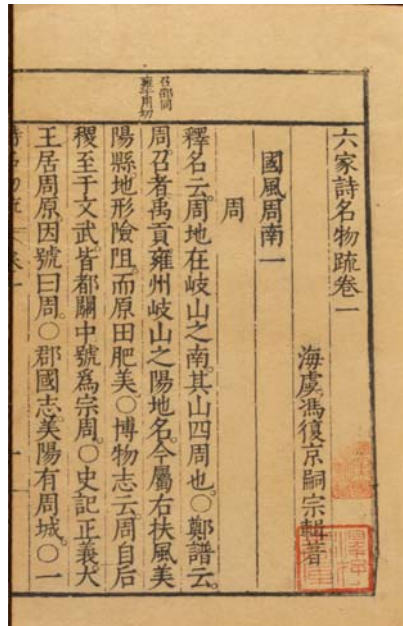 六家詩名物疏卷一
海虞馮復京嗣宗輯著
國風周南一
周
釋名云周地在岐山之南其山四周也○鄭譜云
周召者禹貢雍州岐山之陽地名今屬右扶風美
陽縣地形險阻而原田肥美○博物志云周自后
稷至于文武皆都關中號爲宗周○史記正義大
王居周原因號曰周○郡國志美陽有周城○一
召邵同
雍平用切